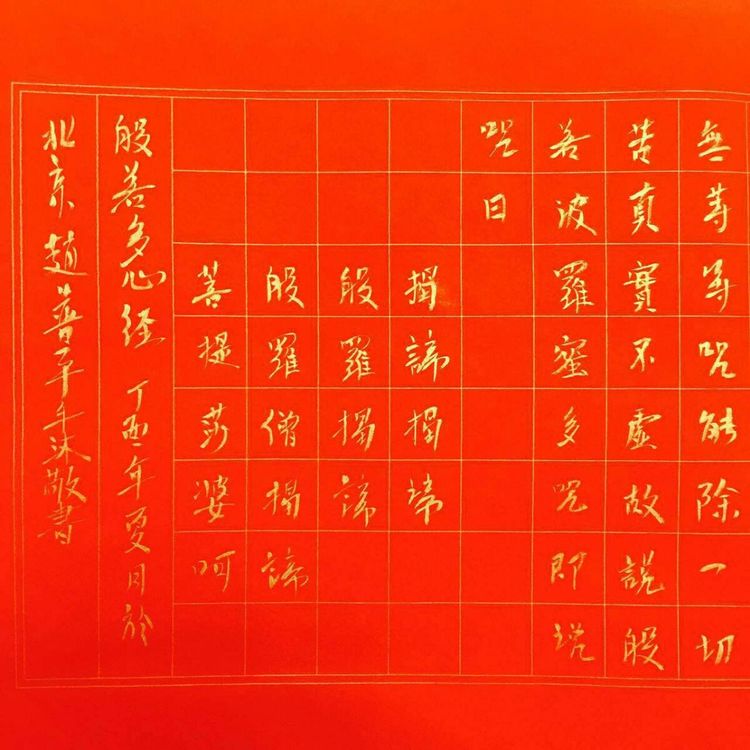 無等等咒能除一切
苦真實不虛故說般
若波羅蜜多咒即說
咒曰
揭諦揭諦
般羅揭諦
般羅僧揭諦
菩提莎婆呵
般若多心经 丁酉年夏日於
北京趙普手沐敬書